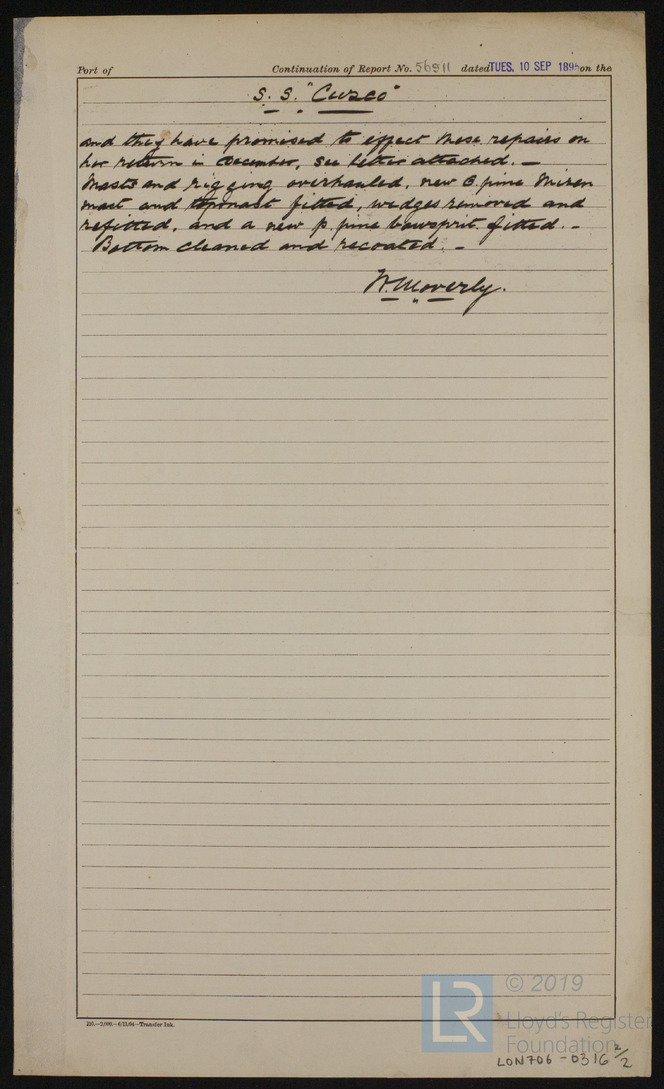 Port of Continuation of Report No. 56911 dated TUES. 10 SEP 1895 on the
S. S. "Cuzco"
and they have promised to effect these repairs on
her return in December, see letter attached. —
Masts and rigging overhauled, new O. pine Mizen
mast and topmast fitted, wedges removed and
refitted, and a new p. pine bowsprit fitted. –
Bottom cleaned and recoated. –
W. Moverly.
210.—2,000.—6/11/94—Transfer Ink.
© 2019
Lloyd's Register
Foundation
LON706-0316 2/2